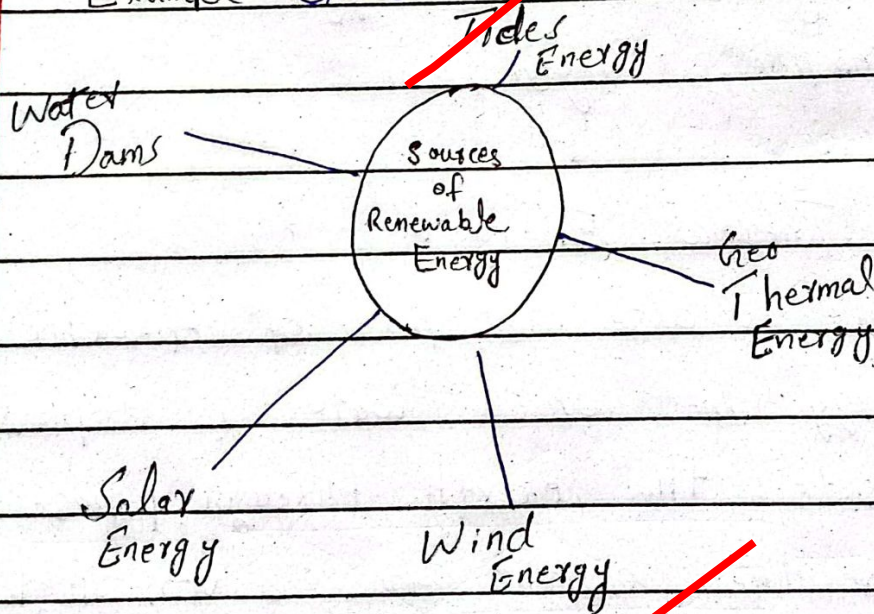 Tides
Energy
Water
Dams
Sources
of
Renewable
Energy
Geo
Thermal
Energy
Solar
Energy
Wind
Energy